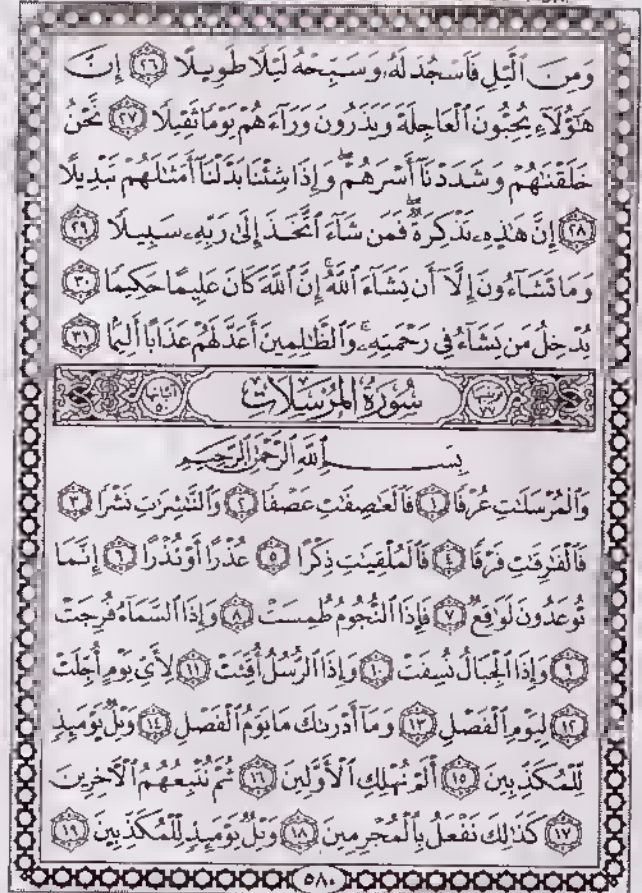 وَمِنَ ٱلَّيْلِ فَٱسْجُدْ لَهُۥ وَسَبِّحْهُ لَيْلًا طَوِيلًا ٢٦ إِنَّ
هَٰٓؤُلَآءِ يُحِبُّونَ ٱلْعَاجِلَةَ وَيَذَرُونَ وَرَآءَهُمْ يَوْمًا ثَقِيلًا ٢٧ نَّحْنُ
خَلَقْنَٰهُمْ وَشَدَدْنَآ أَسْرَهُمْ ۖ وَإِذَا شِئْنَا بَدَّلْنَآ أَمْثَٰلَهُمْ تَبْدِيلًا
٢٨ إِنَّ هَٰذِهِۦ تَذْكِرَةٌ ۖ فَمَن شَآءَ ٱتَّخَذَ إِلَىٰ رَبِّهِۦ سَبِيلًا ٢٩
وَمَا تَشَآءُونَ إِلَّآ أَن يَشَآءَ ٱللَّهُ ۚ إِنَّ ٱللَّهَ كَانَ عَلِيمًا حَكِيمًا ٣٠
يُدْخِلُ مَن يَشَآءُ فِى رَحْمَتِهِۦ ۚ وَٱلظَّٰلِمِينَ أَعَدَّ لَهُمْ عَذَابًا أَلِيمًۢا ٣١
ترتيبها ٧٧ سُورَةُ المُرْسَلَات آياتها ٥٠
بِسْمِ ٱللَّهِ ٱلرَّحْمَٰنِ ٱلرَّحِيمِ
وَٱلْمُرْسَلَٰتِ عُرْفًا ١ فَٱلْعَٰصِفَٰتِ عَصْفًا ٢ وَٱلنَّٰشِرَٰتِ نَشْرًا ٣
فَٱلْفَٰرِقَٰتِ فَرْقًا ٤ فَٱلْمُلْقِيَٰتِ ذِكْرًا ٥ عُذْرًا أَوْ نُذْرًا ٦ إِنَّمَا
تُوعَدُونَ لَوَٰقِعٌ ٧ فَإِذَا ٱلنُّجُومُ طُمِسَتْ ٨ وَإِذَا ٱلسَّمَآءُ فُرِجَتْ
٩ وَإِذَا ٱلْجِبَالُ نُسِفَتْ ١٠ وَإِذَا ٱلرُّسُلُ أُقِّتَتْ ١١ لِأَىِّ يَوْمٍ أُجِّلَتْ
١٢ لِيَوْمِ ٱلْفَصْلِ ١٣ وَمَآ أَدْرَىٰكَ مَا يَوْمُ ٱلْفَصْلِ ١٤ وَيْلٌ يَوْمَئِذٍ
لِّلْمُكَذِّبِينَ ١٥ أَلَمْ نُهْلِكِ ٱلْأَوَّلِينَ ١٦ ثُمَّ نُتْبِعُهُمُ ٱلْءَاخِرِينَ
١٧ كَذَٰلِكَ نَفْعَلُ بِٱلْمُجْرِمِينَ ١٨ وَيْلٌ يَوْمَئِذٍ لِّلْمُكَذِّبِينَ ١٩
٥٨٠